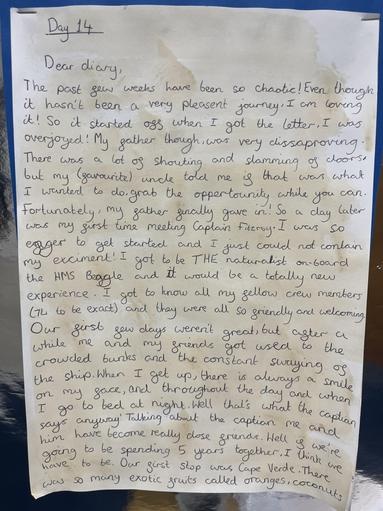 Day 14
Dear diary,
The past few weeks have been so chaotic! Even though
it hasn't been a very pleasent journey, I am loving
it! So it started off when I got the letter, I was
overjoyed! My father though, was very dissaproving.
There was a lot of shouting and slamming of doors,
but my (favourite) uncle told me if that was what
I wanted to do, grab the oppertounity while you can.
Fortunately, my father finally gave in! So a day later
was my first time meeting Captain Fitzroy. I was so
eager to get started and I just could not contain
my exciment! I got to be THE naturalist on-board
the HMS Beagle and it would be a totally new
experience. I got to know all my fellow crew members
(74 to be exact) and they were all so friendly and welcoming.
Our first few days weren't great, but after a
while me and my friends got used to the
crowded bunks and the constant swaying of
the ship. When I get up, there is always a smile
on my face, and throughout the day and when
I go to bed at night. Well that's what the captian
says anyway! Talking about the captian me and
him have become really close friends. Well if we're
going to be spending 5 years together, I think we
have to be. Our first stop was Cape Verde. There
was so many exotic fruits called oranges, coconuts